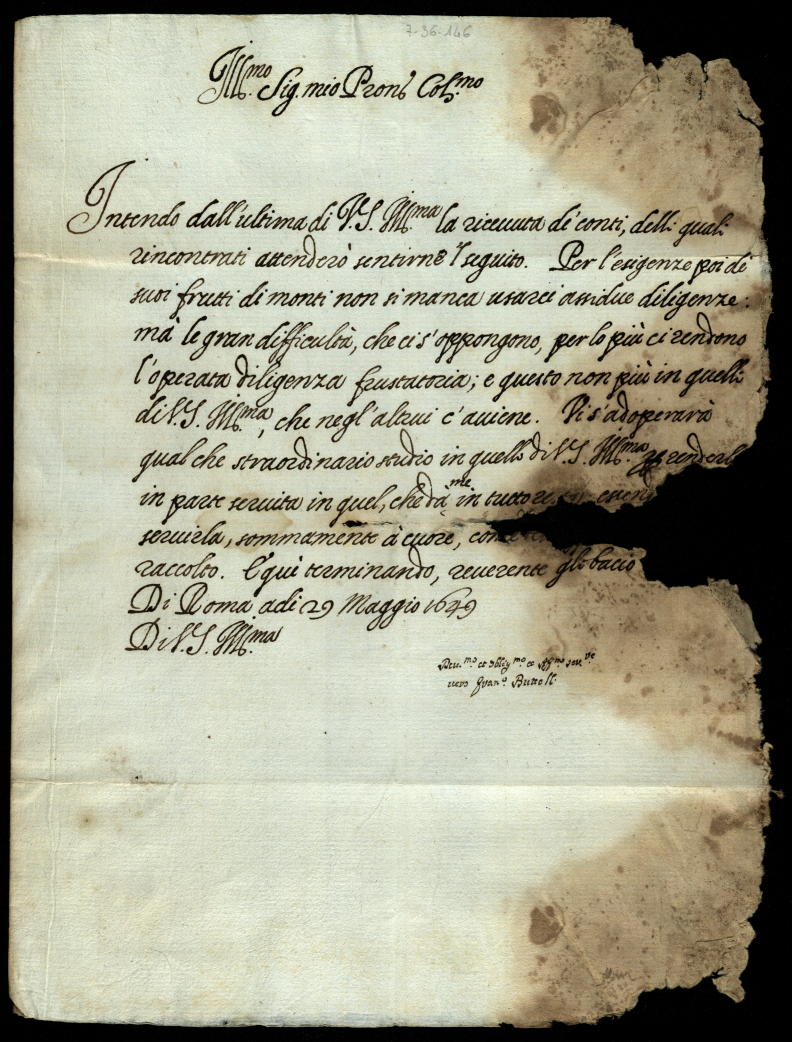 7-36-146
Ill.mo Sig. mio Pron Col.mo
Intendo dall'ultima di V.S. Ill.ma la ricevuta de' conti, delli quali
rincontrati attenderò sentirne il seguito. Per l'esigenze poi de
suoi frutti di monti non si manca usarci assidue diligenze:
mà le gran difficultà, che ci s'oppongono, per lo più ci rendono
l'operata diligenza frustatoria; e questo non più in quelli
di V.S. Ill.ma, che negl'altrui c'auiene. Vi s'adoperarà
qualche straordinario studio in quello di V.S. Ill.ma
in parte seruita in quel, che dà me in tutto
seruirla, sommamente à cuore,
raccolto. E qui terminando, reuerente gli bacio
Di Roma adi 29 Maggio 1649
Di V.S. Ill.ma
Deu.mo et oblig.mo et Aff.mo
uero Fran.o